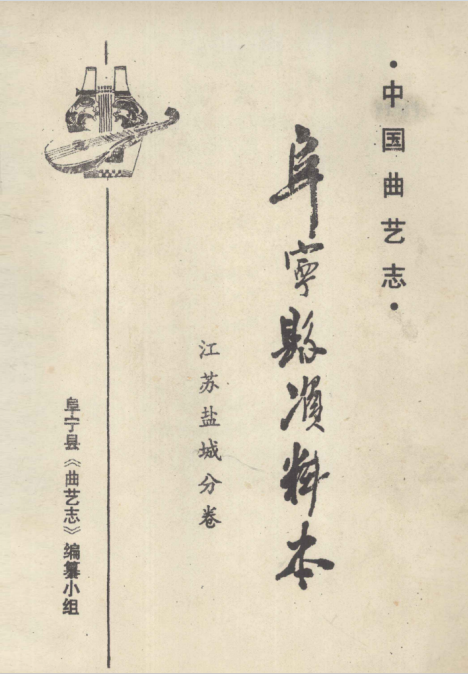 ·中国曲艺志·
阜宁县资料本
江苏盐城分卷
阜宁县《曲艺志》编纂小组